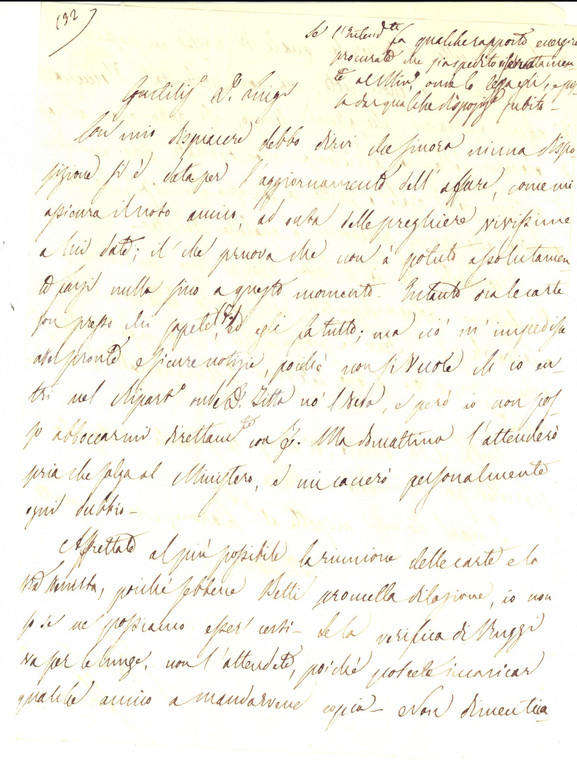 (32)
Se l'Intend.te fa qualche rapporto energico
procurate che sia spedito direttamen
te al Min.o onde lo legga egli, e possa
dar qualche disposiz.e subito -
Gentilis.o D. Luigi
Con mio dispiacere debbo dirvi che finora niuna dispo
sizione si è data per l'aggiornamento dell'affare, come mi
assicura il noto amico, ad onta delle preghiere vivissime
a lui date; il che pruova che non à potuto assolutamen
te farsi nulla fino a questo momento. Intanto ora le carte
son presso chi sapete ed egli fa tutto; ma ciò m'impedisce
aver pronte e sicure notizie, poiché non si vuole ch'io en
tri nel Ripart.o onde D. Zitto no'l veda, e però io non pos
so abboccarmi direttam.te con Ma domattina l'attenderò
pria che salga al Ministero, e mi caverò personalmente
ogni dubbio -
Affrettate al più possibile la riunione delle carte e la
poiché sebbene Petti prometta dilazione, io non
so se ne possiamo esser certi - Se la verifica di
va per le lunge, non l'attendete, poiché potrete incaricar
qualche amico a mandarvene copia - Non dimentica